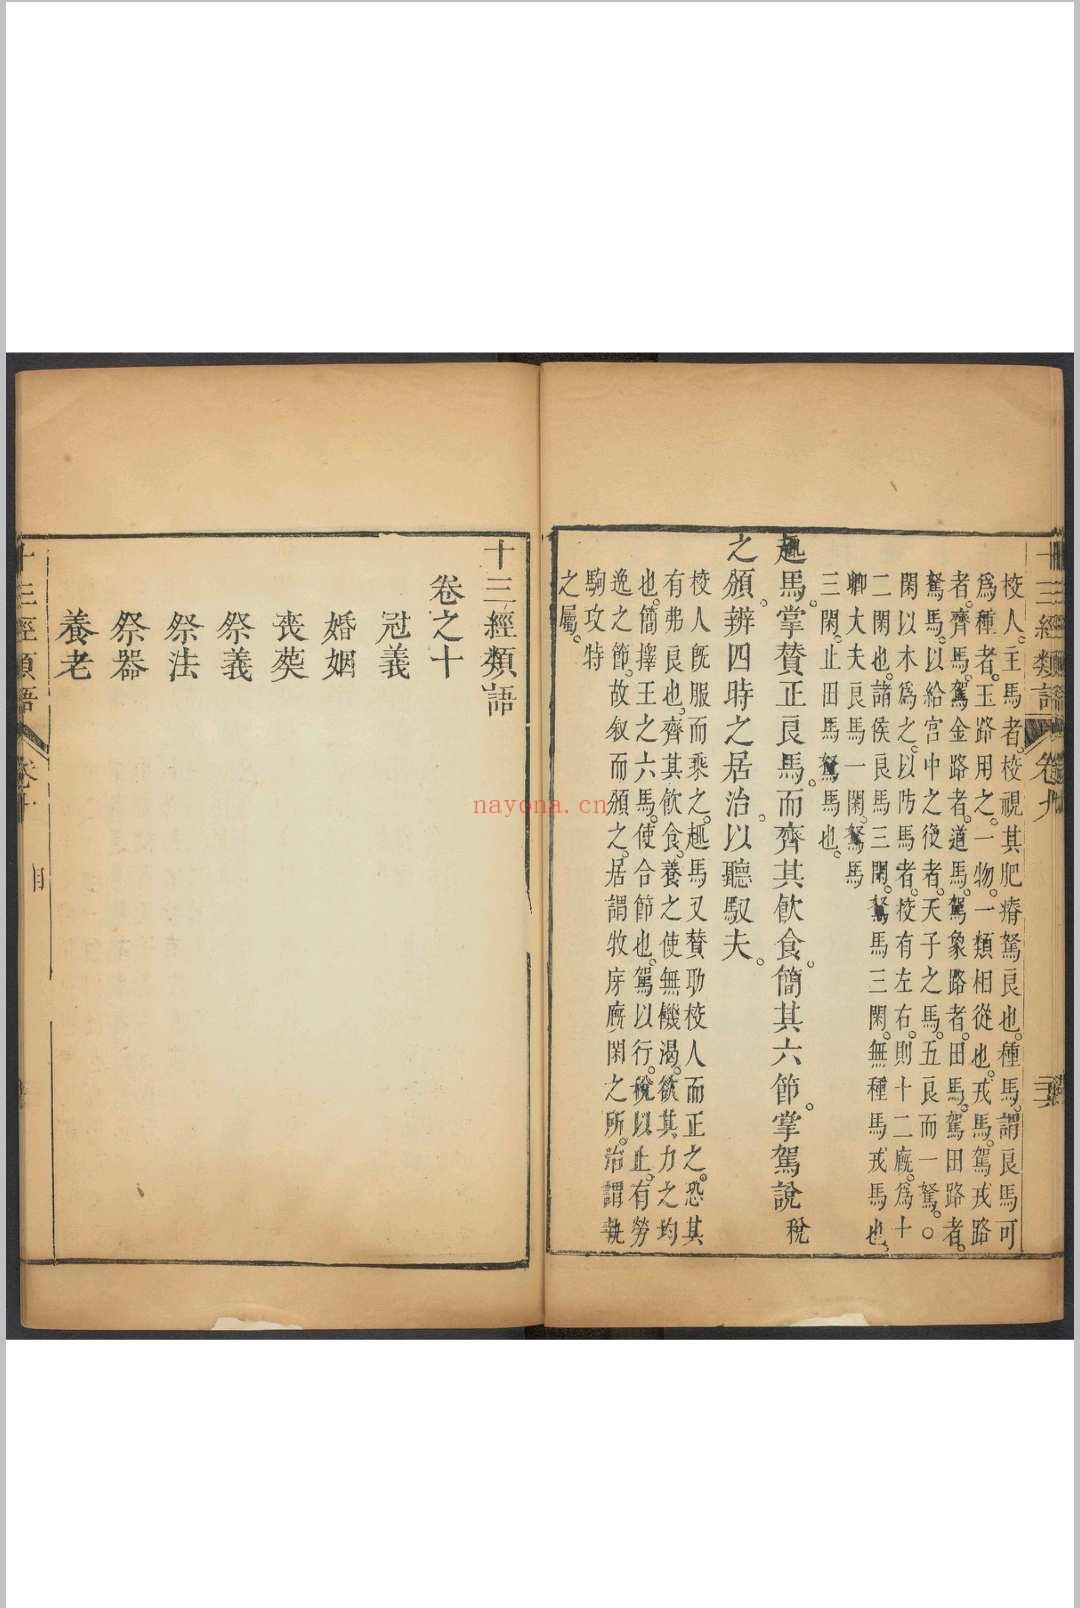 十三經類語 卷九
校人。主馬者。校視其肥瘠駑良也。種馬。謂良馬可
爲種者。玉路用之。一物。一類相從也。戎馬。駕戎路
者。齊馬。駕金路者。道馬。駕象路者。田馬。駕田路者。
駑馬。以給宮中之役者。天子之馬。五良而一駑。○
閑以木爲之。以防馬者。校有左右。則十二廐。爲十
二閑也。諸侯良馬三閑。駑馬三閑。無種馬戎馬也。
卿大夫良馬一閑。駑馬
三閑。止田馬駑馬也。
趣馬。掌贊正良馬。而齊其飲食。簡其六節。掌駕說稅
之頒。辨四時之居治。以聽馭夫。
校人旣服而乘之。趣馬又贊助校人而正之。恐其
有弗良也。齊其飲食。養之使無饑渴。欲其力之均
也。簡擇王之六馬。使合節也。駕以行。稅以止。有勞
逸之節。故叙而頒之。居謂牧庌廐閑之所。治謂執
駒攻特
之屬。
十三經類語
卷之十
冠義
婚姻
喪葬
祭義
祭法
祭器
養老
十三經類語 卷十 目
nayona.cn